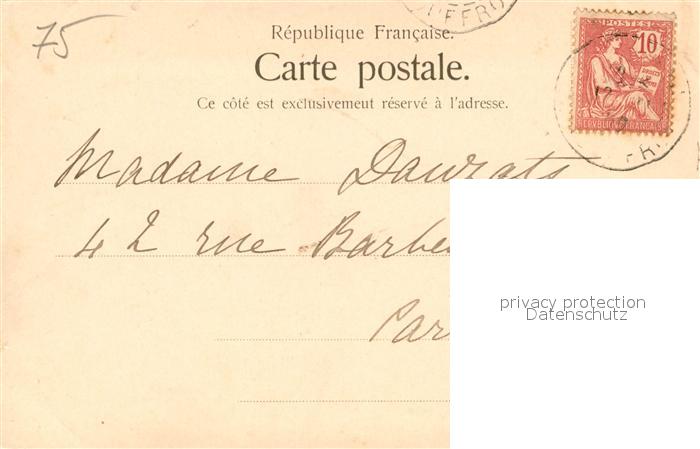 75
République Française.
Carte postale.
Ce côté est exclusivement réservé à l'adresse.
POSTES
10
REPUBLIQUE FRANÇAISE
Madame
42 rue
privacy protection
Datenschutz